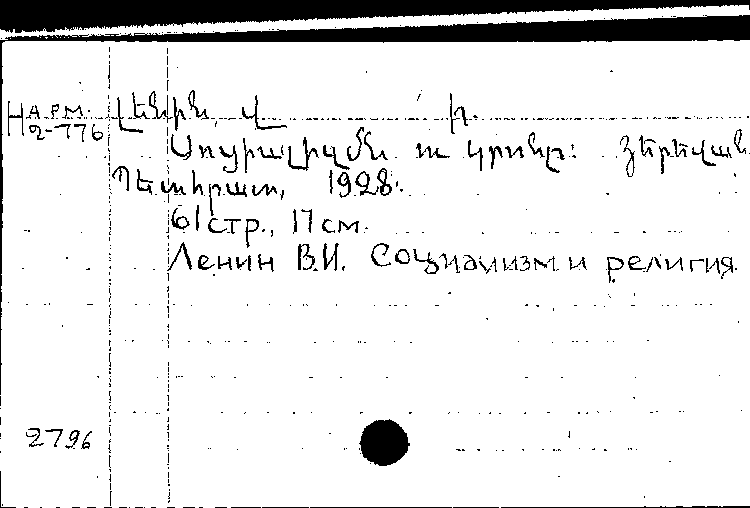 Н АРМ. Լենին, Վ. Ի.
2-776
Սոցիալիզմն ու կրոնը: Յերեվան
Պետհրատ, 1928.
61 стр., 17 см.
Ленин В.И. Социализм и религия.
2796